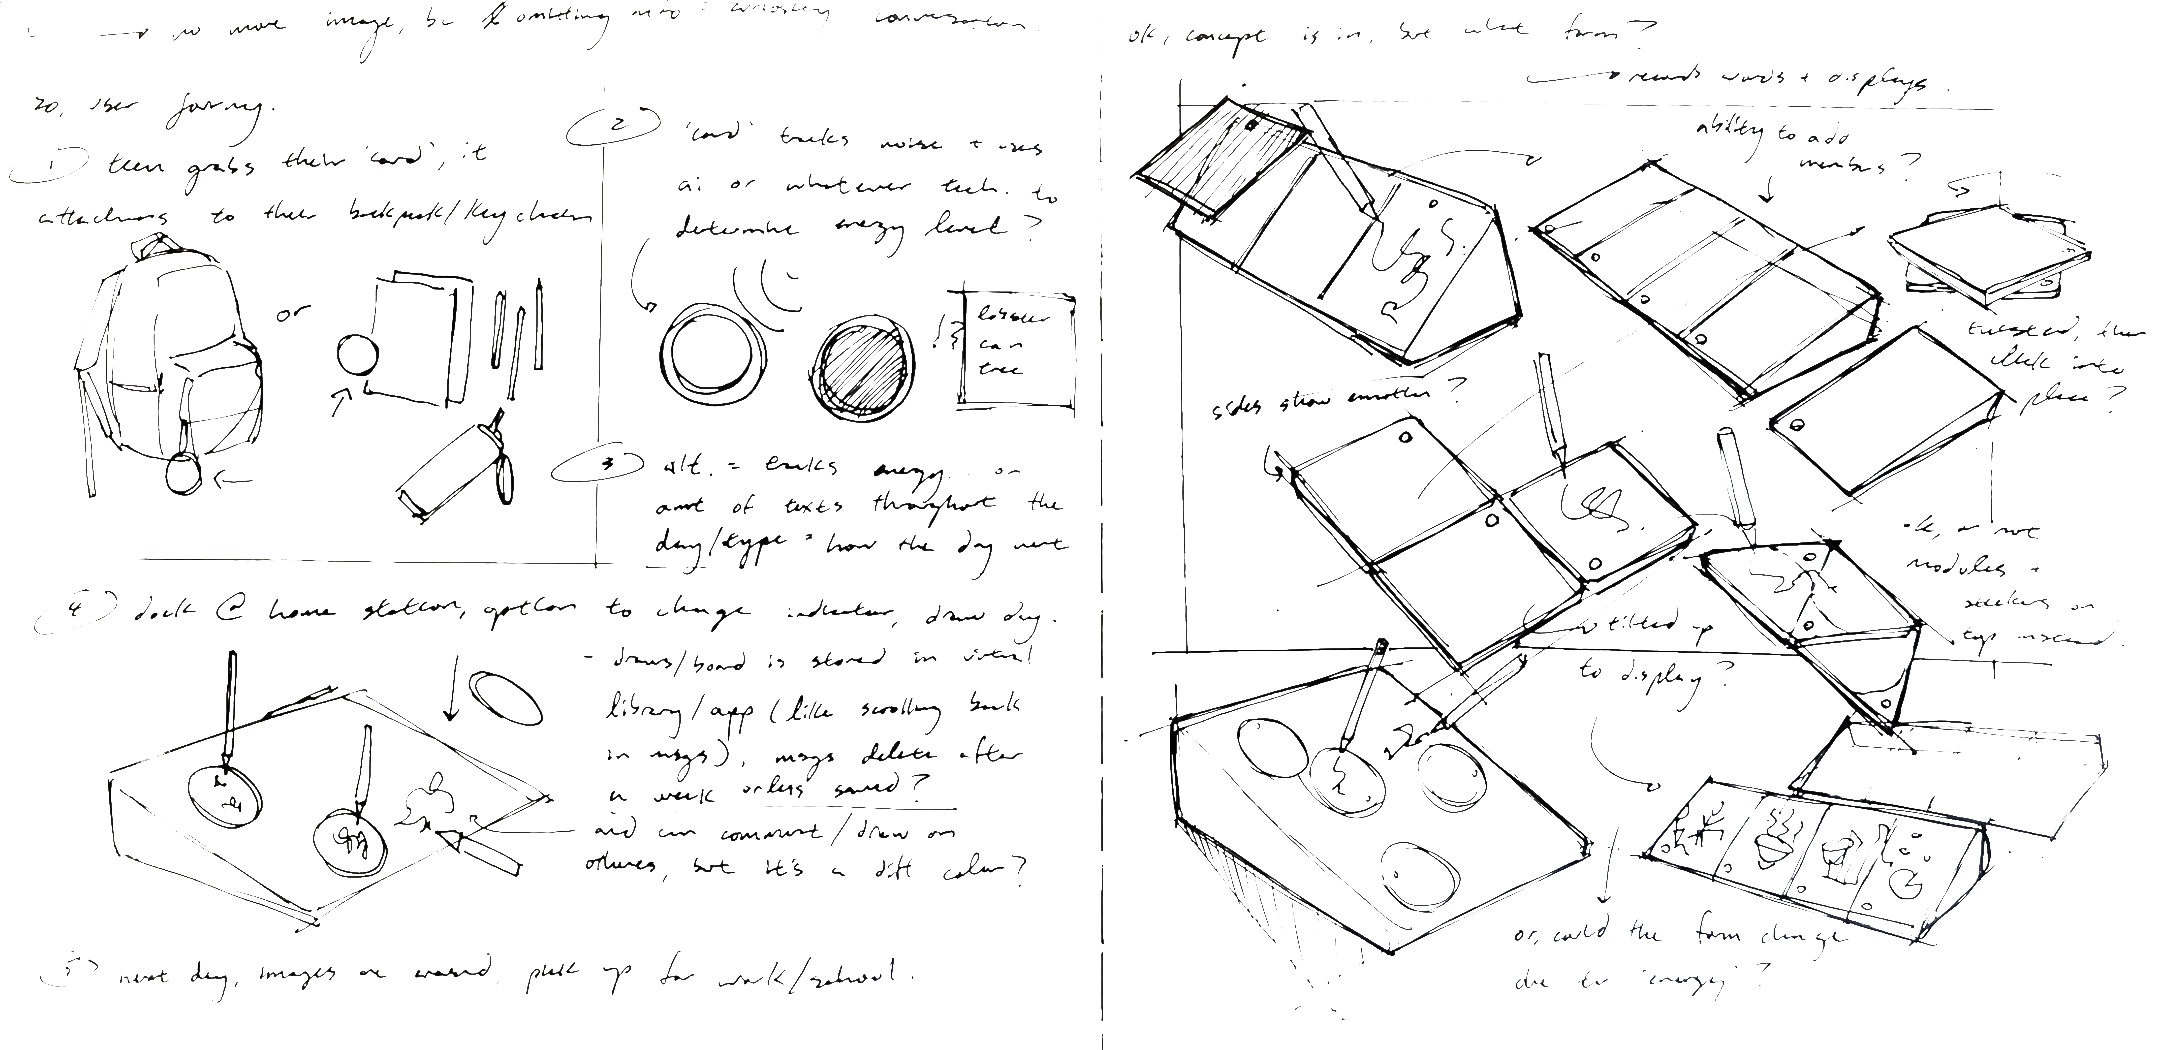 → no more image, but omitting into conversation.
so, user journey.
1 teen grabs their 'card', it
attaches to their backpack/keychain
or
2 'card' tracks noise + uses
ai or whatever tech. to
determine energy level?
lobster
can
tree
3 alt. = tracks energy or
amt of texts throughout the
day/type = how the day went
4 dock @ home station, option to change indicator, draw day.
- draws/board is stored in virtual
library/app (like scrolling back
in msgs), msgs delete after
a week unless saved?
and can comment/draw on
others, but it's a diff color?
5 next day, images are erased, pick up for work/school.
ok, concept is in, but what form?
→ records words + displays.
ability to add
members?
twisted, then
click into
place?
sides show emotion?
ok, or not
modules -
stickers on
top instead.
tilted up
to display?
or, could the form change
due to 'energy'?